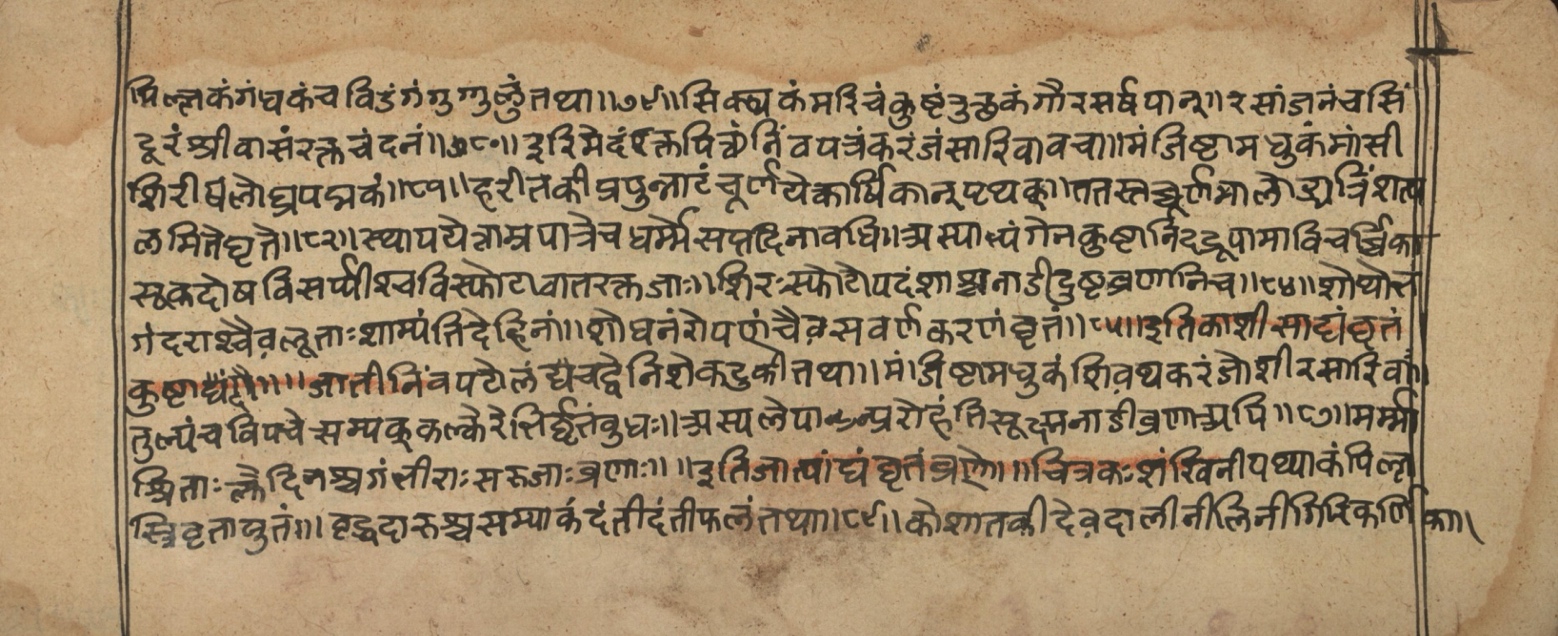 पिल्लकंगंधकंचविडंगंगुग्गुलुंतथा॥७९॥सिक्थकंमरिचंकुष्टंतुत्थकंगौरसर्षपान्॥रसांजनंचसिं
दूरंश्रीवासंरक्तचंदनं॥८०॥इरिमेदं निंवपत्रंकरंजंसारिवावचा॥मंजिष्टामधुकंमांसी
शिरीषंलोध्रपद्मकं॥८१॥हरीतकीप्रपुन्नाटंचूर्णयेकार्षिकान्पृथक्॥ततस्तच्चूर्णमालोड्यत्रिंशत्प
लमितेघृते॥८२॥स्थापयेत्ताम्रपात्रेचघर्मेसप्तदिनावधि॥अस्याभ्यंगेनकुष्टानिदद्रूपामाविचर्चिका
स्रूकदोषविसर्प्पाश्चविस्फोटावातरक्तजाः॥शिरःस्फोटोपदंशाश्चनाडीदुष्टव्रणानिच॥८४॥शोथोभ
गंदराश्चैवलूताःशाम्यंतिदेहिनां॥शोधनंरोपणंचैवसवर्णकरणंघृतं॥८५॥इतिकाशीसाद्यंघृतं
कुष्टाद्यं॥॥जातीनिंवपटोलंद्वेचद्वेनिशेकटुकीतथा॥मंजिष्टामधुकंशिवथकरंजोशीरसारिवां
तुल्यंचविपचेत्सम्यक्कल्कैरेभिर्घृतंवुधः॥अस्यलेपात्प्ररोहंतिसूक्ष्मनाडीव्रणाअपि॥८७॥मर्म्मा
श्रिताःक्लेदिनश्चगंभीराःसरुजाःव्रणाः॥॥इतिजात्यांद्यंघृतंव्रणे॥॥चित्रकःशंखिनीपथ्याकंपिल्ल
स्त्रिवृतायुतं॥वृद्धदारुश्चसम्याकंदंतीदंतीफलंतथा॥८९॥कोशातकीदेवदालीनीलिनीगिरिकर्णिका॥